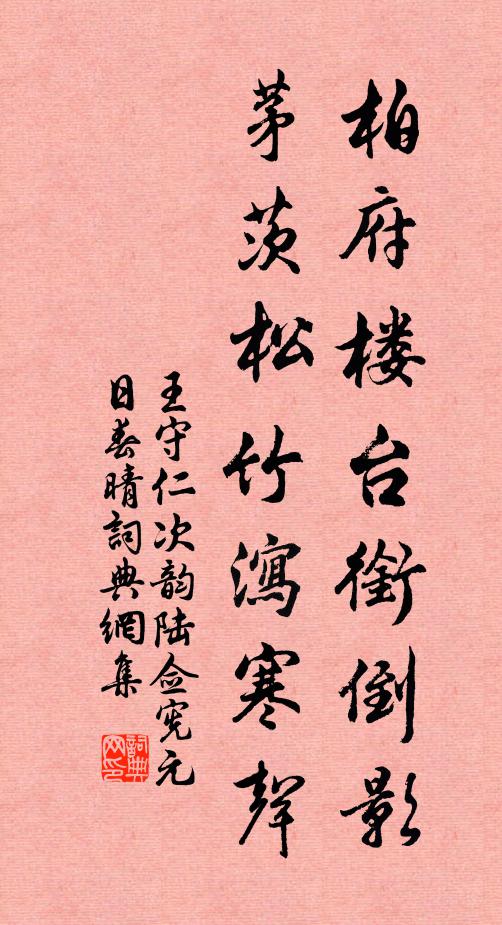 柏府楼台銜倒影
茅茨松竹瀉寒聲
王守仁次韵陆佥宪元
日春晴詞典網集
詞典网印